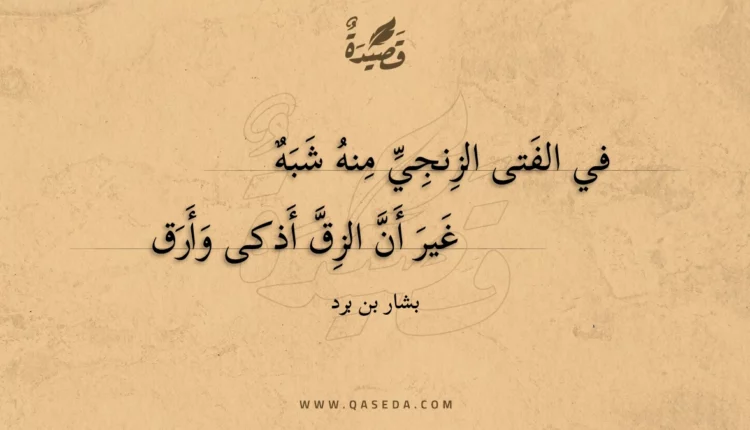 قَصِيْدَةٌ
في الفَتى الزِنجِيِّ مِنهُ شَبَهٌ
غَيرَ أَنَّ الزِقَّ أَذكى وَأَرَق
بشار بن برد
WWW.QASEDA.COM